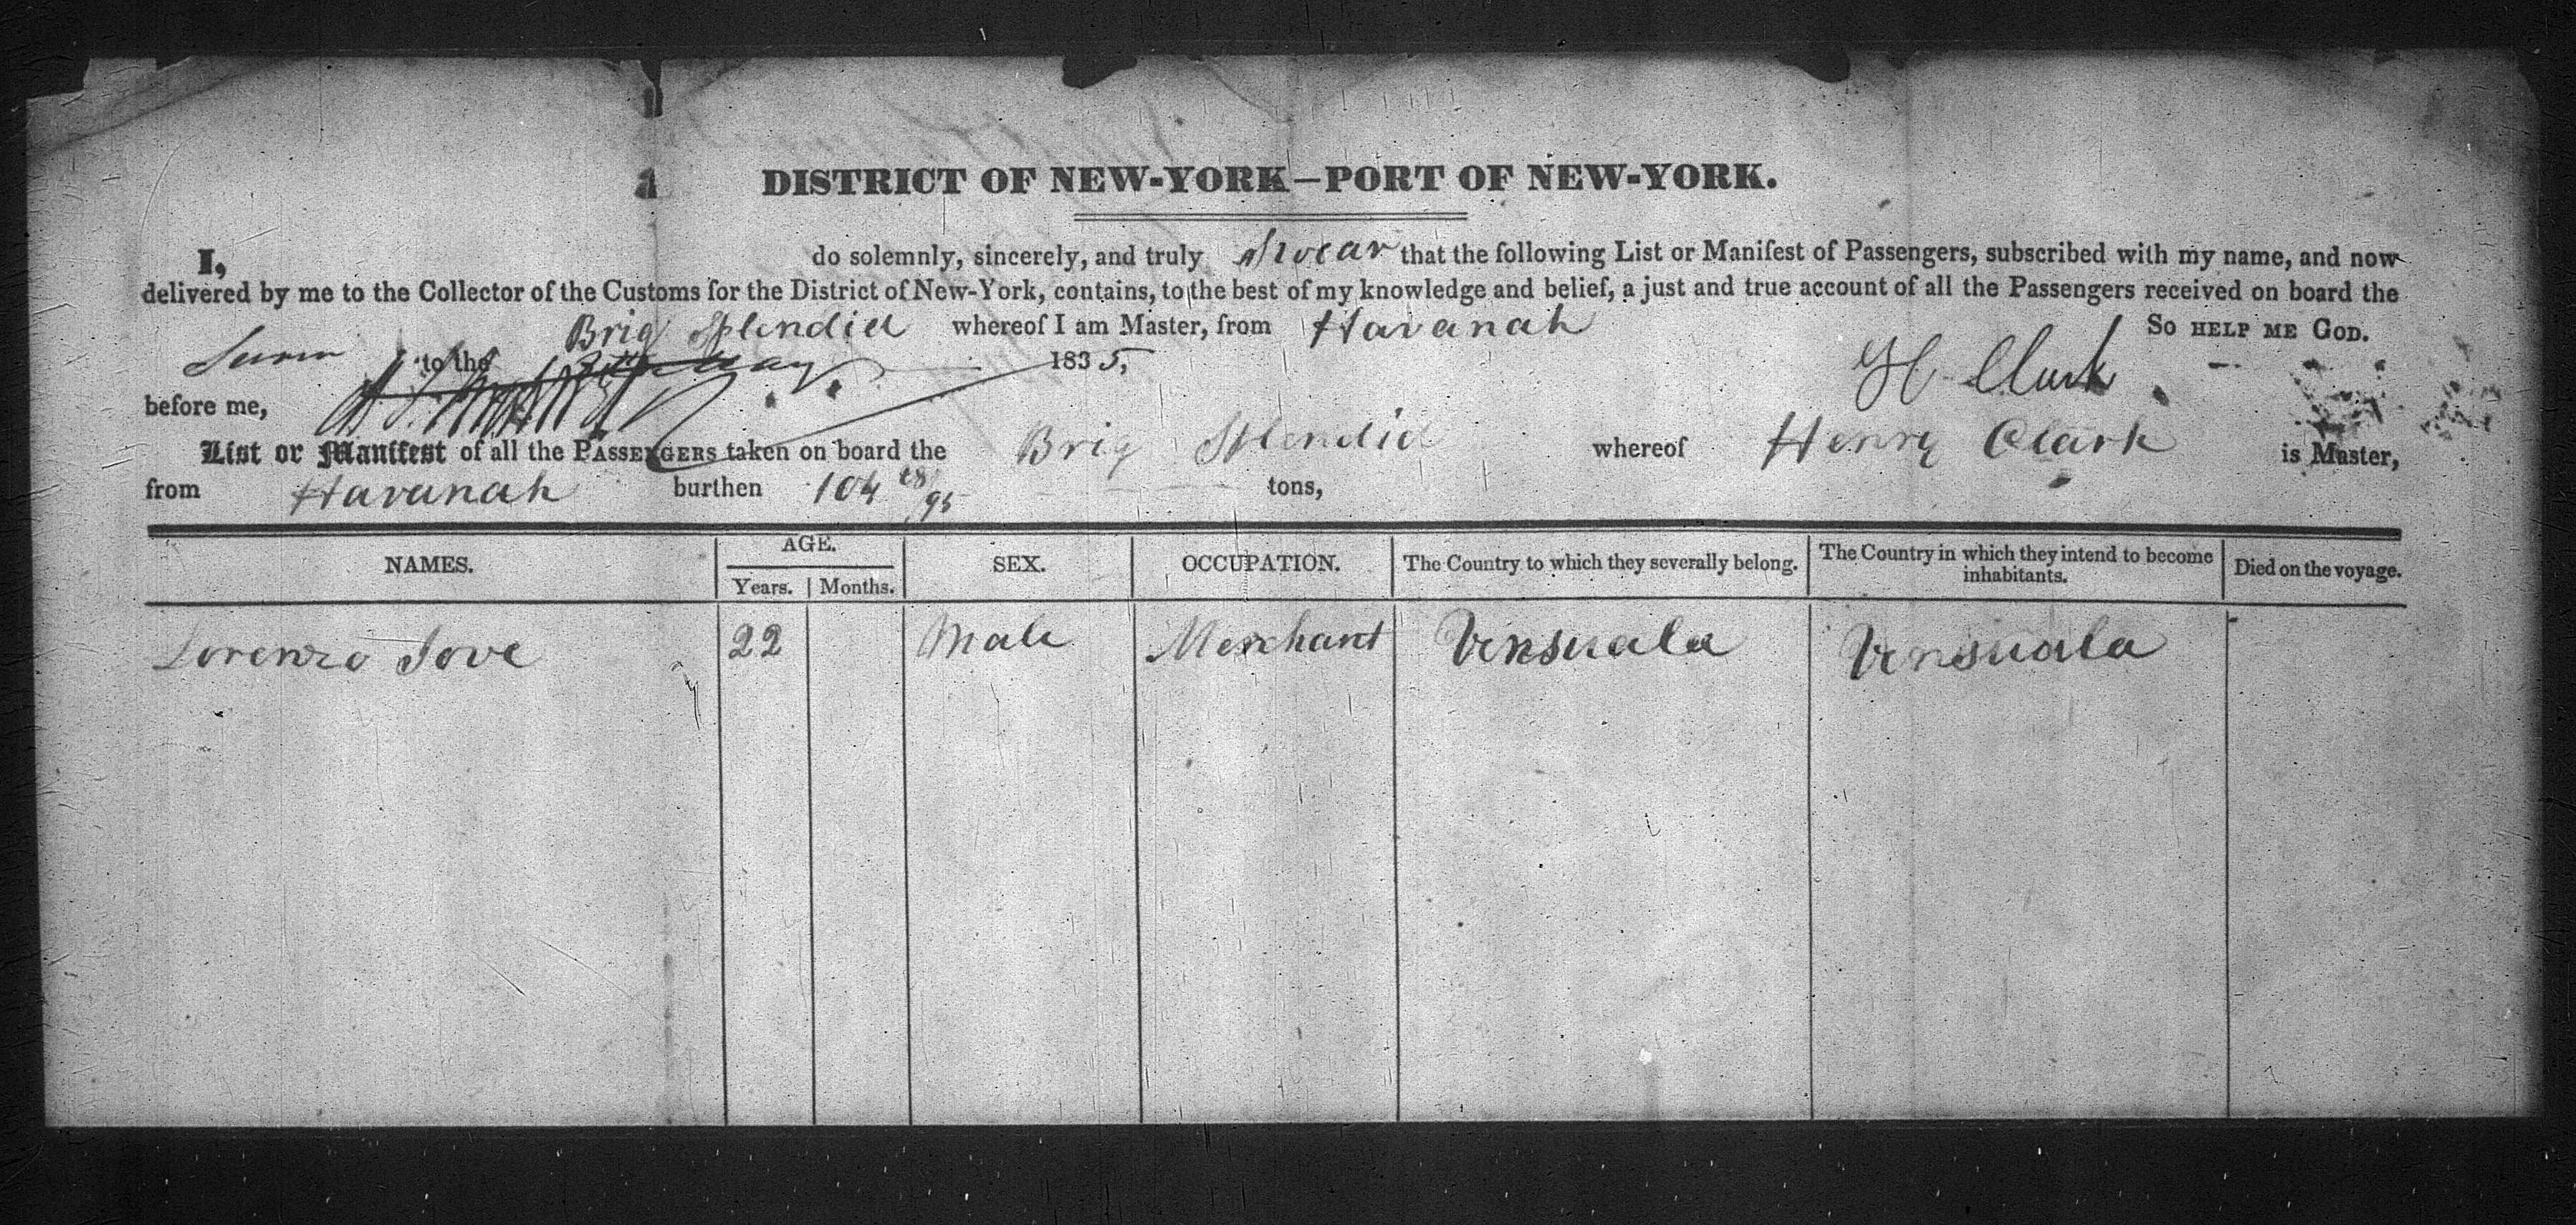 DISTRICT OF NEW-YORK—PORT OF NEW-YORK.
I, do solemnly, sincerely, and truly swear that the following List or Manifest of Passengers, subscribed with my name, and now
delivered by me to the Collector of the Customs for the District of New-York, contains, to the best of my knowledge and belief, a just and true account of all the Passengers received on board the
Brig Splendid whereof I am Master, from Havanah So HELP ME GOD.
Sworn to the May 1835,
H Clark
before me,
List or Manifest of all the PASSENGERS taken on board the Brig Splendid whereof Henry Clark is Master,
from Havanah burthen 104 /95 tons,
NAMES. AGE. Years. Months. SEX. OCCUPATION. The Country to which they severally belong. The Country in which they intend to become inhabitants. Died on the voyage.
Lorenzo Jove 22 Male Merchant Vensuala Vensuala